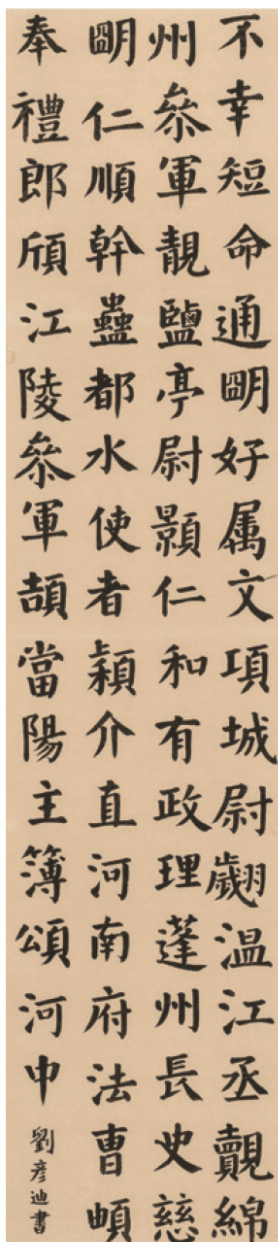 不幸短命通明好属文項城尉翽温江丞覿綿
州叅軍靚鹽亭尉顥仁和有政理蓬州長史慈
明仁順幹蠱都水使者穎介直河南府法曹頔
奉禮郎頎江陵叅軍頡當陽主簿頌河中
劉彦迪書